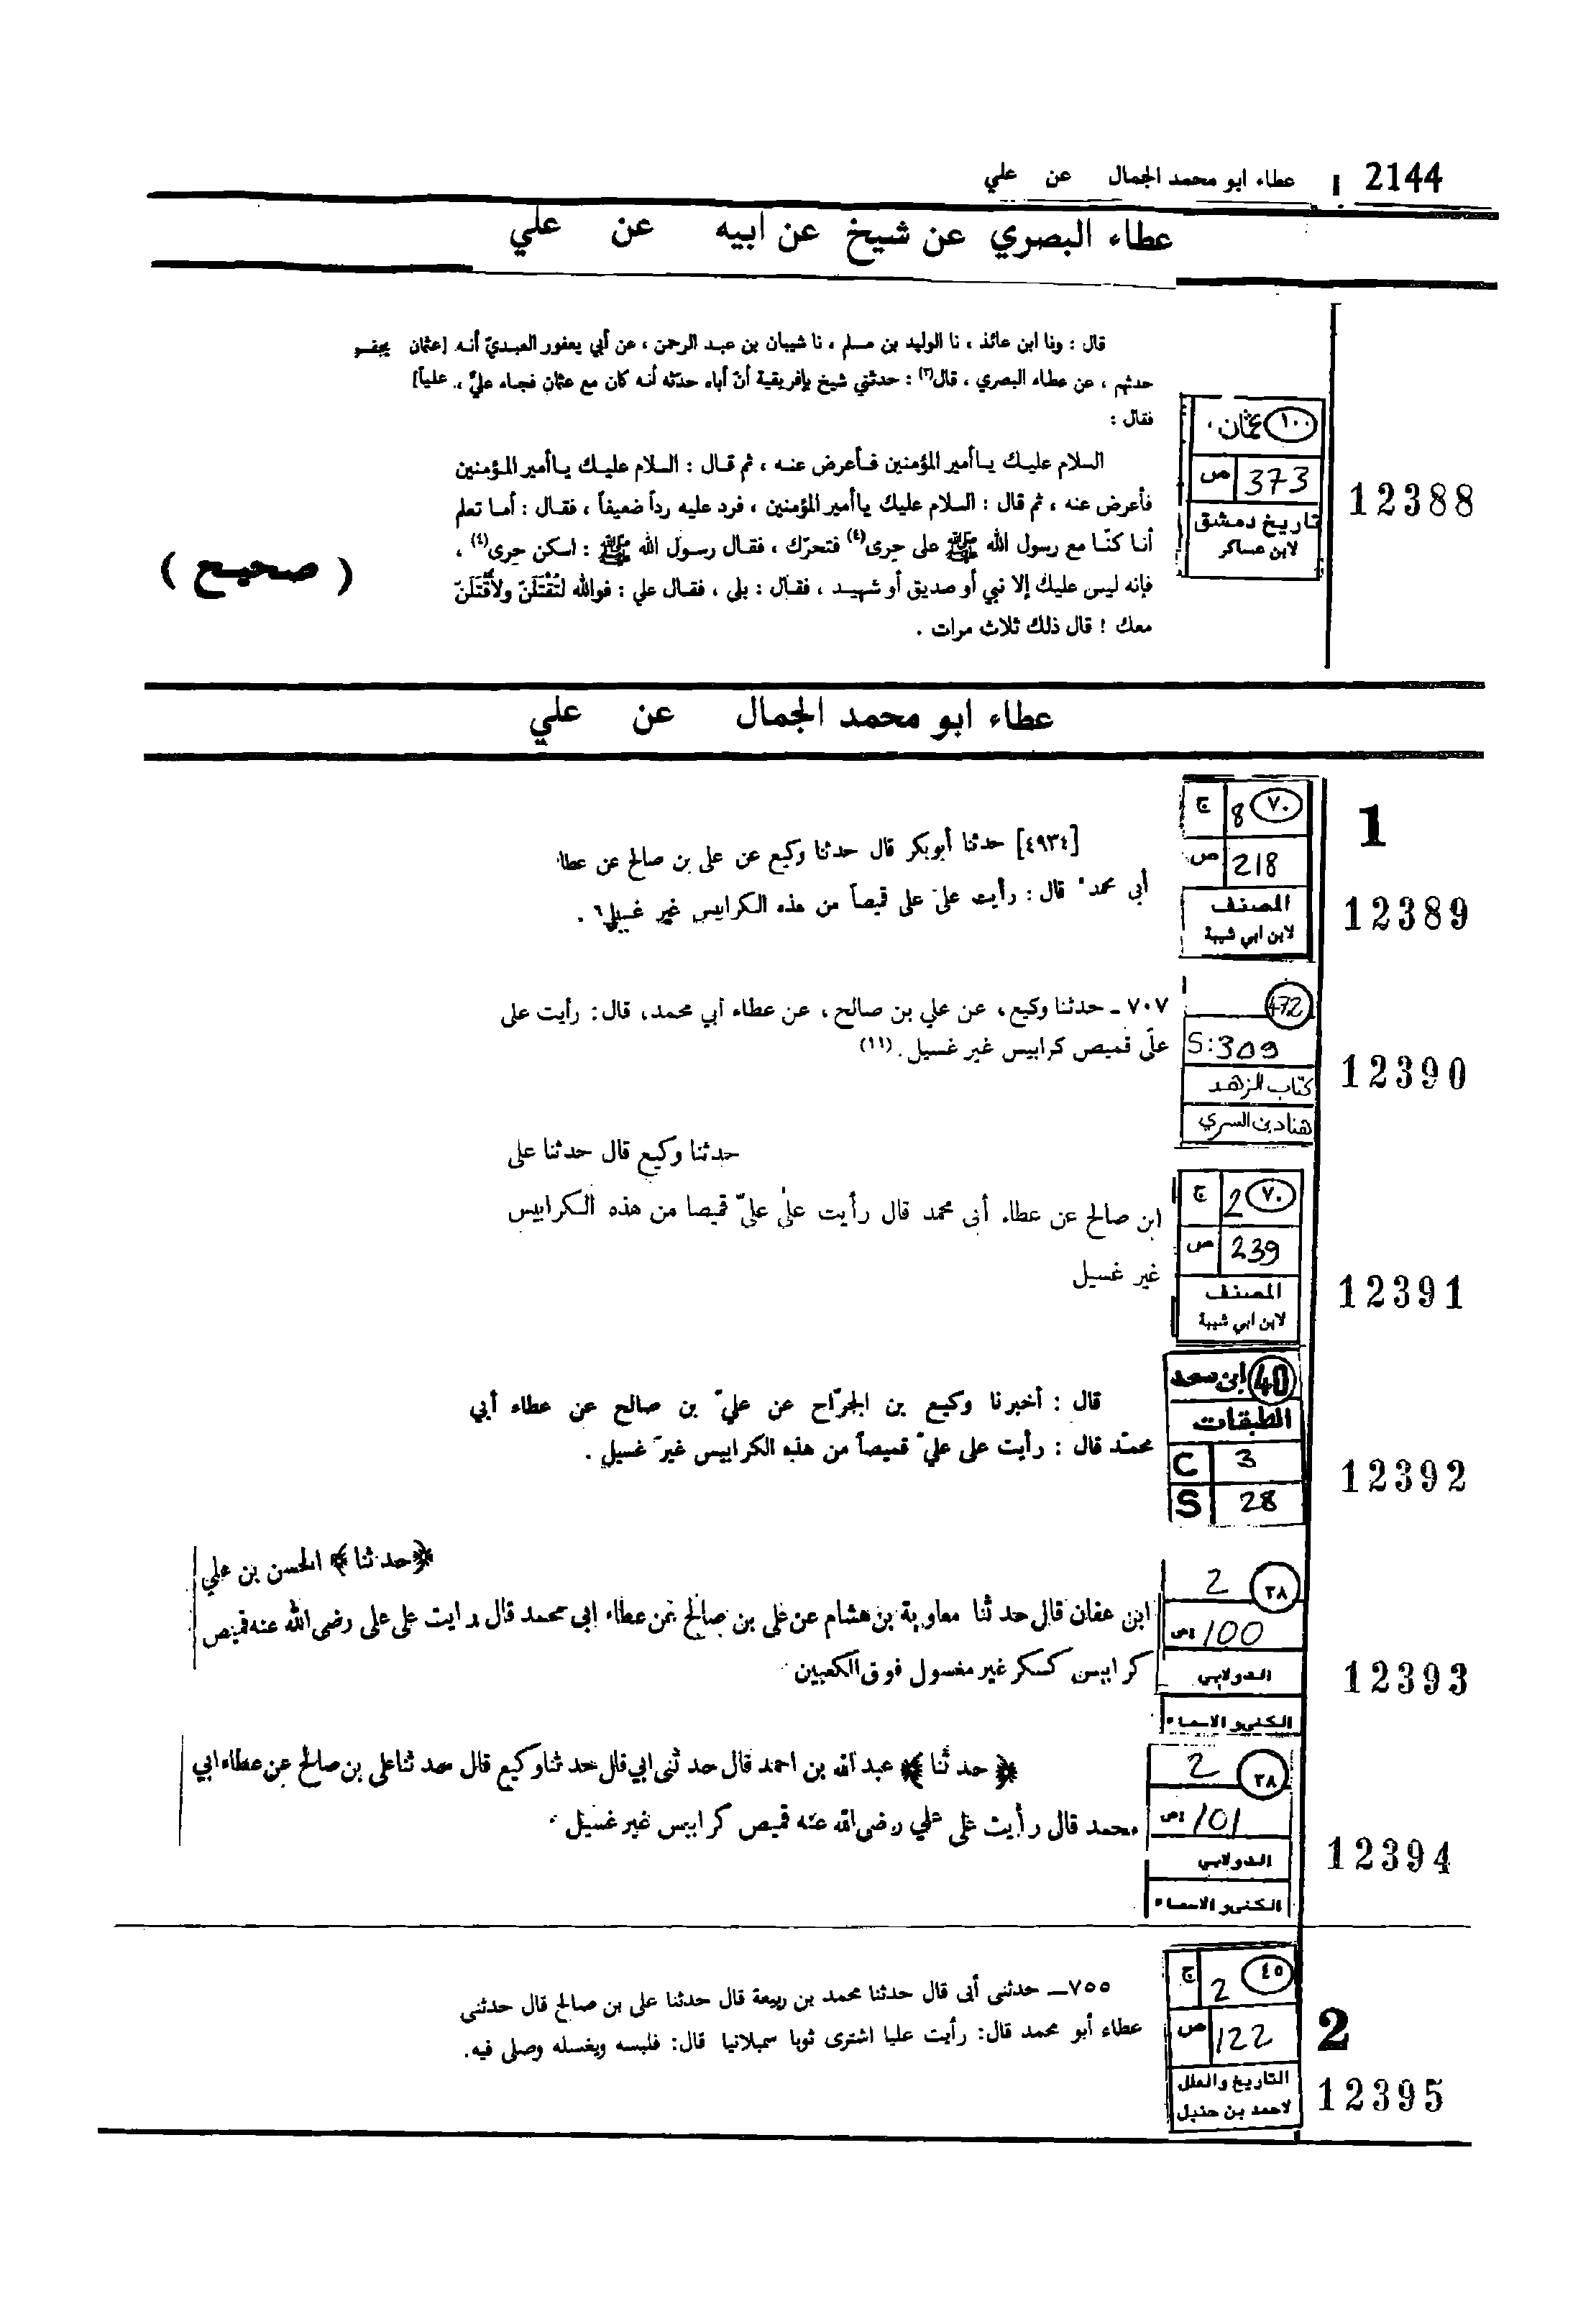 2144 عطاء ابو محمد الجمال عن علي
عطاء البصري عن شيخ عن ابيه عن علي
قال : ونا ابن عائذ ، نا الوليد بن مسلم ، نا شيبان بن عبد الرحمن ، عن أبي يعفور العبديّ أنه [عثمان يجفو
حدثهم ، عن عطاء البصري ، قال(٣) : حدثني شيخ بإفريقية أنّ أباه حدّثه أنه كان مع عثمان فجاء عليٌّ ، علياً]
فقال :
السلام عليك ياأمير المؤمنين فأعرض عنه ، ثم قال : السلام عليك ياأمير المؤمنين
فأعرض عنه ، ثم قال : السلام عليك ياأمير المؤمنين ، فرد عليه رداً ضعيفاً ، فقال : أما تعلم
أنا كنّا مع رسول الله ﷺ على حِرى(٤) فتحرّك ، فقال رسول الله ﷺ : اسكن حِرى(٤) ،
فإنه ليس عليك إلا نبي أو صديق أو شهيد ، فقال : بلى ، فقال علي : فوالله لتُقْتَلَنّ ولأُقْتَلَنّ
معك ! قال ذلك ثلاث مرات .
( صحيح )
١٠٠ عثمان
373 ص
تاريخ دمشق
لابن عساكر
12388
عطاء ابو محمد الجمال عن علي
1
٧٠ 8 ج
218 ص
المصنف
لابن ابي شيبة
12389
[٤٩٣٤] حدثنا أبوبكر قال حدثنا وكيع عن على بن صالح عن عطاء
أبي محمد قال : رأيت على علىّ قميصاً من هذه الكرابيس غير غسيل٦ .
472
S:309
كتاب الزهد
هناد بن السري
12390
٧٠٧ ـ حدثنا وكيع، عن علي بن صالح، عن عطاء أبي محمد، قال: رأيت على
علّي قميص كرابيس غير غسيل. (١١)
٧٠ 2 ج
239 ص
المصنف
لابن ابي شيبة
12391
حدثنا وكيع قال حدثنا على
ابن صالح عن عطاء أبى محمد قال رأيت على علىّ قميصا من هذه الكرابيس
غير غسيل
40 ابن سعد
الطبقات
C 3
S 28
12392
قال : أخبرنا وكيع بن الجرّاح عن عليّ بن صالح عن عطاء أبي
محمّد قال : رأيت على عليّ قميصاً من هذه الكرابيس غيرَ غسيل .
٣٨ 2
100 ص
الدولابي
الكنى و الاسماء
12393
﴿حدثنا﴾ الحسن بن علي
ابن عفان قال حدثنا معاوية بن هشام عن على بن صالح عن عطاء ابى محمد قال رايت على على رضى الله عنه قميص
كرابيس كسكر غير مغسول فوق الكعبين
٣٨ 2
101 ص
الدولابي
الكنى و الاسماء
12394
﴿حدثنا﴾ عبد الله بن احمد قال حدثنى ابي قال حدثنا وكيع قال حدثنا على بن صالح عن عطاء ابي
محمد قال رأيت على علي رضى الله عنه قميص كرابيس غير غسيل
٤٥ 2 ج
122 ص
التاريخ والعلل
لاحمد بن حنبل
2
12395
٧٥٥ــ حدثنى أبى قال حدثنا محمد بن ربيعة قال حدثنا على بن صالح قال حدثنى
عطاء أبو محمد قال: رأيت عليا اشترى ثوبا سمبلانيا قال: فلبسه ويغسله وصلى فيه.